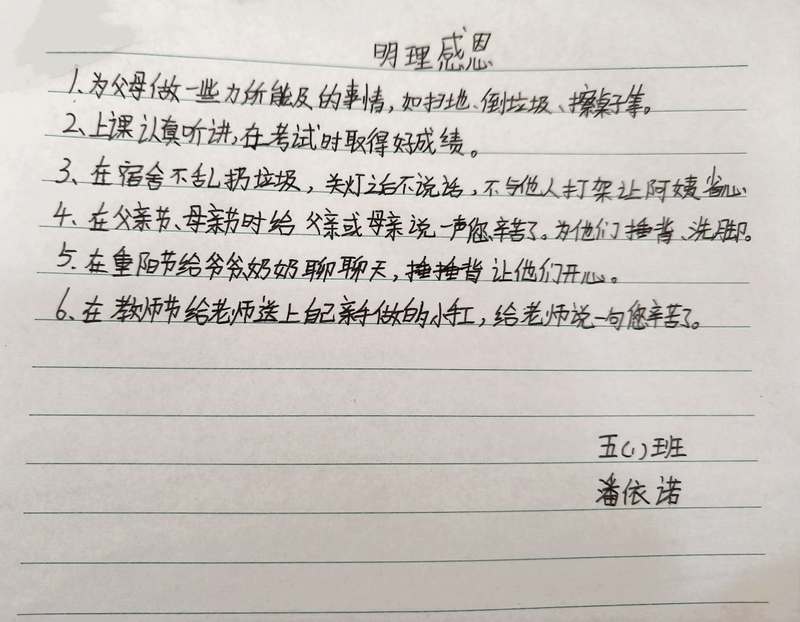 明理感恩
1、为父母做一些力所能及的事情，如扫地、倒垃圾、擦桌子等。
2、上课认真听讲，在考试时取得好成绩。
3、在宿舍不乱扔垃圾，关灯之后不说话，不与他人打架让阿姨省心
4、在父亲节、母亲节时给父亲或母亲说一声您辛苦了。为他们捶背、洗脚。
5、在重阳节给爷爷奶奶聊聊天，捶捶背让他们开心。
6、在教师节给老师送上自己亲手做的小手工，给老师说一句您辛苦了。
五（1）班
潘依诺